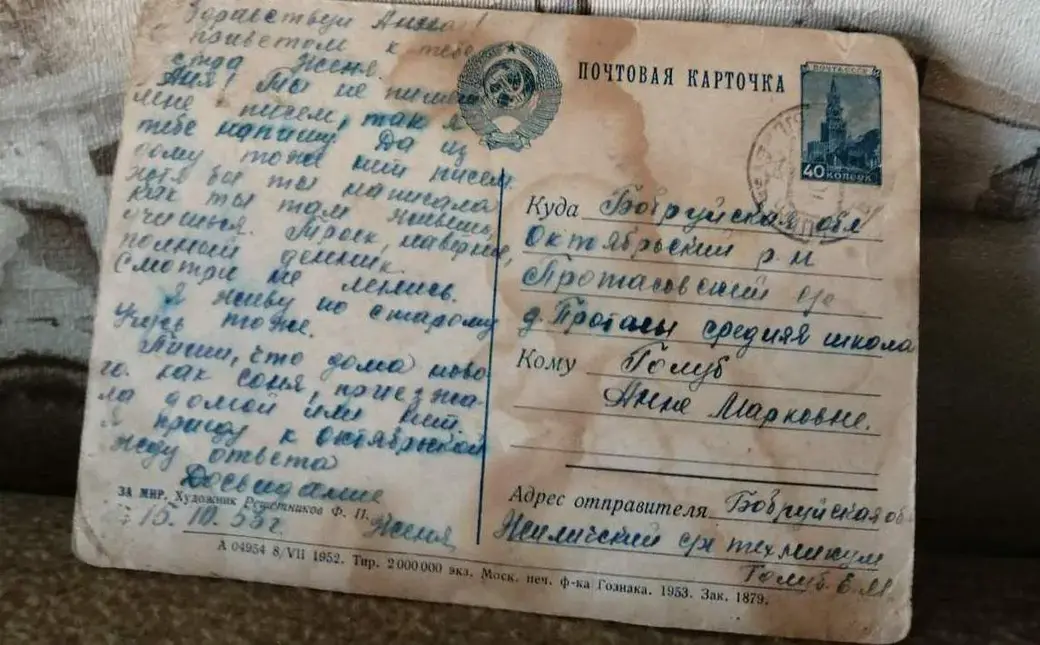 Здравствуй Анечка!
С приветом к тебе
Женя.
Аня! Мы не пишем
мне писем, так я
тебе напишу. Да из
дому тоже нит писем.
хотя бы ты написала
как ты там живешь,
учишься. Троек, наверное,
полный денник.
Смотри не ленись.
Я живу по старому
Учусь тоже.
Пиши, что дома ново-
го. как Соня, приезжа-
ла домой или нит.
Я приеду к октябрьской
жду ответа
Досвидание
15.10.53 г. Женя
ЗА МИР. Художник Решетников Ф. П.
ПОЧТОВАЯ КАРТОЧКА
ПОЧТА СССР
40 КОПЕЕК
Куда Бобруйская обл
Октябрьский р-н
Протасовский
д. Протасы средняя школа
Кому Голуб
Анне Марковне.
Адрес отправителя Бобруйская об
Жиличский с/х техникум
Голуб Е.М.
А 04954 8/VII 1952. Тир. 2 000 000 экз. Моск. печ. ф-ка Гознака. 1953. Зак. 1879.